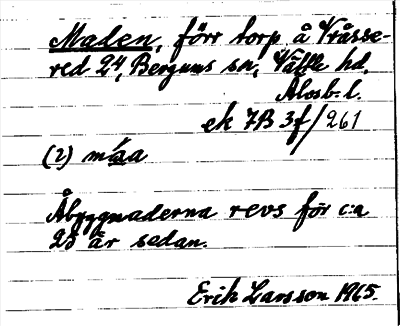 Maden, förr torp å Vråsse-
red 24, Bergums sn, Vättle hd,
Älvsb. l.
ek 7B 3f/261
(2) måa
Åbyggnaderna revs för c:a
25 år sedan.
Erik Larsson 1965.